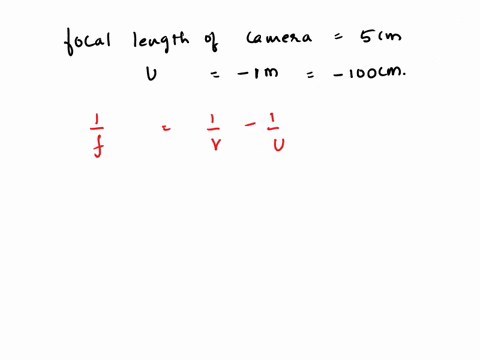 focal length of camera = 5cm
U = -1m = -100cm.
1/f = 1/v - 1/U